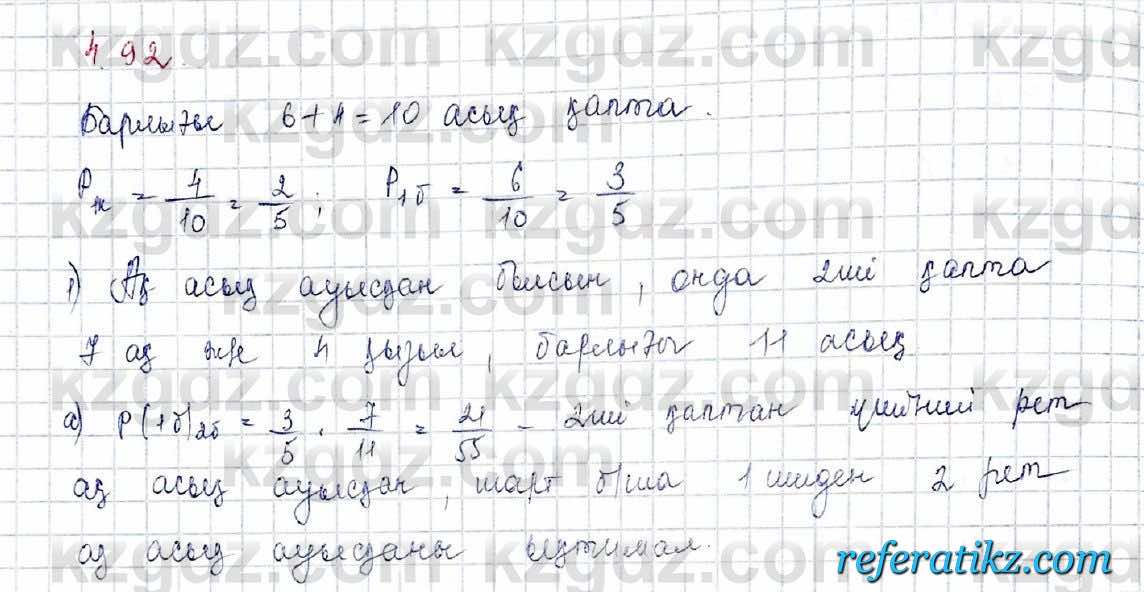 4.92.
Барлығы 6+4=10 асық қапта.
P₁қ = 4/10 = 2/5; P₁б = 6/10 = 3/5
1) Ақ асық ауысқан болсын, онда 2ші қапта
7 ақ және 4 қызыл, барлығы 11 асық
а) P(1б)2б = 3/5 · 7/11 = 21/55 – 2ші қаптан рет
ақ асық ауысқан, шарт б/ша 1 шиден 2 рет
ақ асық ауысқаны ықтимал.
kzgdz.com
referatikz.com